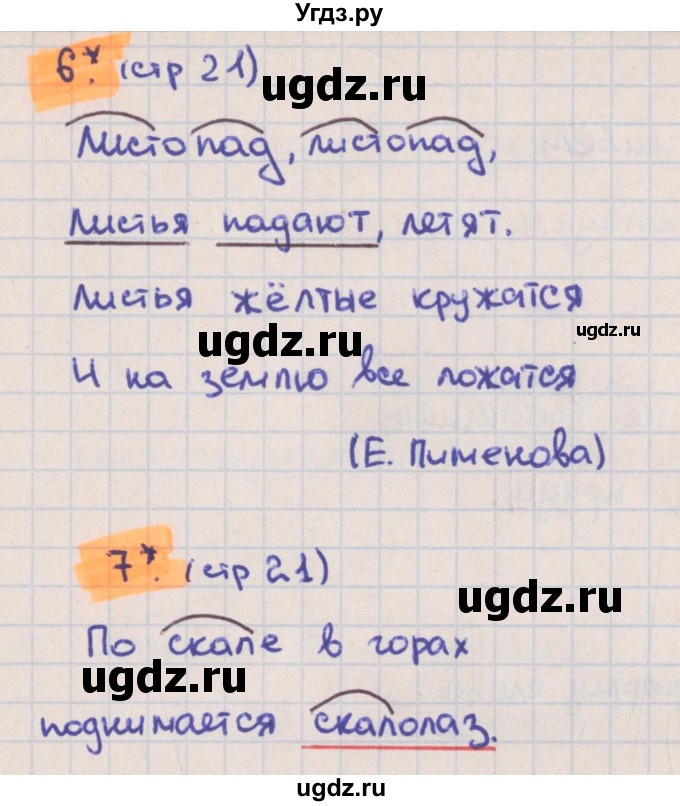 Угдз.ру
6*. (стр 21)
ugdz.ru
Листопад, листопад,
Листья падают, летят.
Листья жёлтые кружатся
ugdz.ru
ugdz.ru
И на землю все ложатся
(Е. Пименова)
7*. (стр 21)
ugdz.ru
По скале в горах
ugdz.ru
поднимается скалолаз.
ugdz.ru